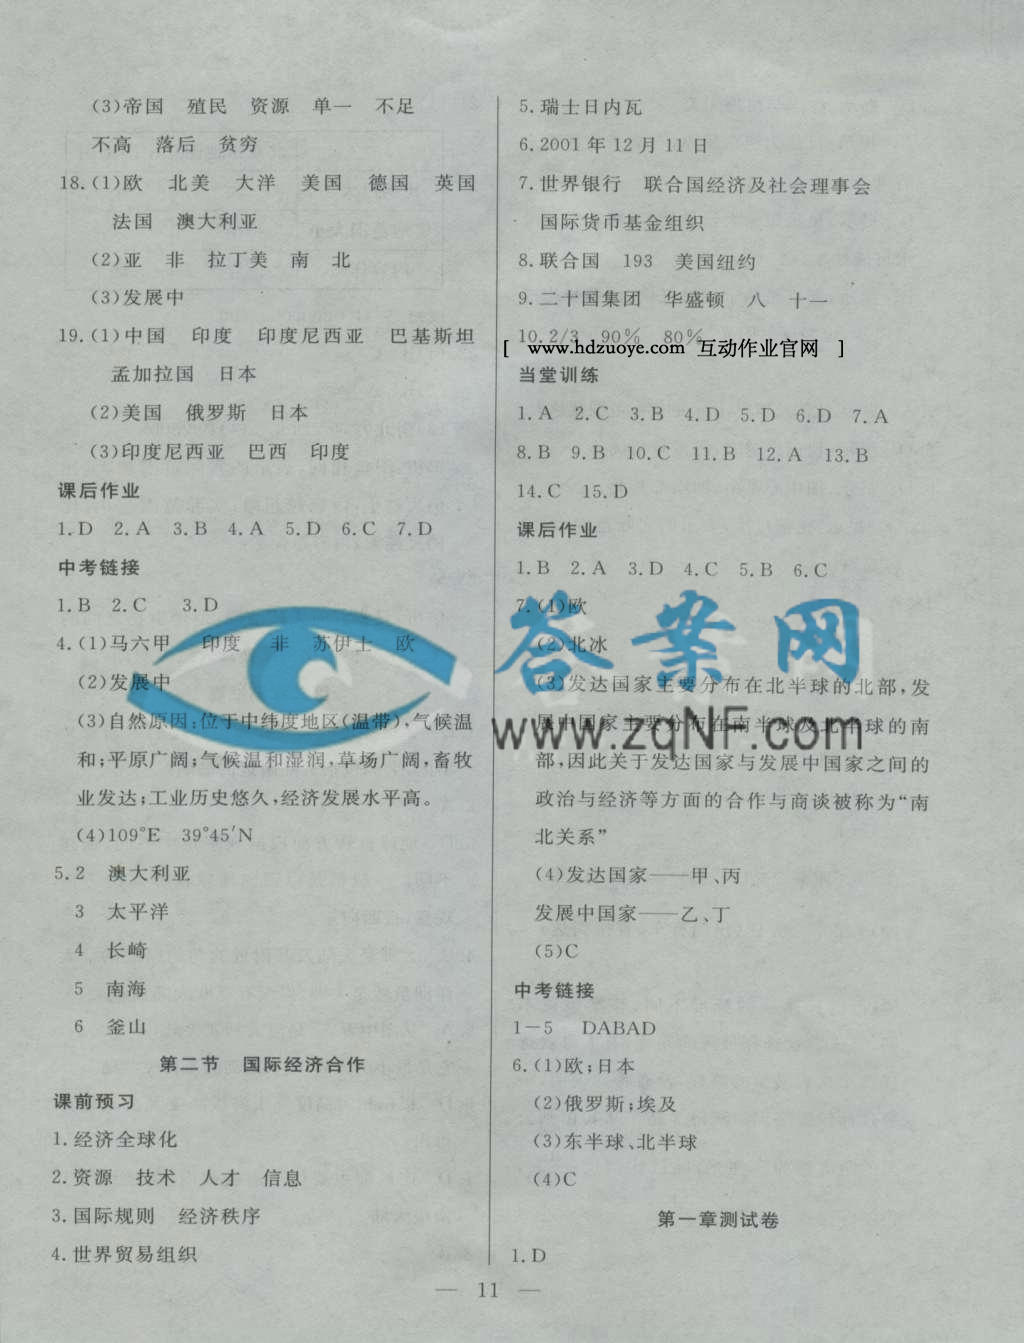 (3)帝国 殖民 资源 单一 不足
不高 落后 贫穷
18.(1)欧 北美 大洋 美国 德国 英国
法国 澳大利亚
(2)亚 非 拉丁美 南 北
(3)发展中
19.(1)中国 印度 印度尼西亚 巴基斯坦
孟加拉国 日本
(2)美国 俄罗斯 日本
(3)印度尼西亚 巴西 印度
课后作业
1.D 2.A 3.B 4.A 5.D 6.C 7.D
中考链接
1.B 2.C 3.D
4.(1)马六甲 印度 非 苏伊士 欧
(2)发展中
(3)自然原因:位于中纬度地区(温带),气候温
和;平原广阔;气候温和湿润,草场广阔,畜牧
业发达;工业历史悠久,经济发展水平高。
(4)109°E 39°45′N
5.2 澳大利亚
3 太平洋
4 长崎
5 南海
6 釜山
第二节 国际经济合作
课前预习
1.经济全球化
2.资源 技术 人才 信息
3.国际规则 经济秩序
4.世界贸易组织
5.瑞士日内瓦
6.2001年12月11日
7.世界银行 联合国经济及社会理事会
国际货币基金组织
8.联合国 193 美国纽约
9.二十国集团 华盛顿 八 十一
10.2/3 90% 80%
[ www.hdzuoye.com 互动作业官网 ]
当堂训练
1.A 2.C 3.B 4.D 5.D 6.D 7.A
8.B 9.B 10.C 11.B 12.A 13.B
14.C 15.D
课后作业
1.B 2.A 3.D 4.C 5.B 6.C
7.(1)欧
(2)北冰
(3)发达国家主要分布在北半球的北部,发
展中国家主要分布在南半球及北半球的南
部,因此关于发达国家与发展中国家之间的
政治与经济等方面的合作与商谈被称为“南
北关系”
(4)发达国家——甲、丙
发展中国家——乙、丁
(5)C
中考链接
1-5 DABAD
6.(1)欧;日本
(2)俄罗斯;埃及
(3)东半球、北半球
(4)C
第一章测试卷
1.D
答案网
www.zqNF.com
— 11 —